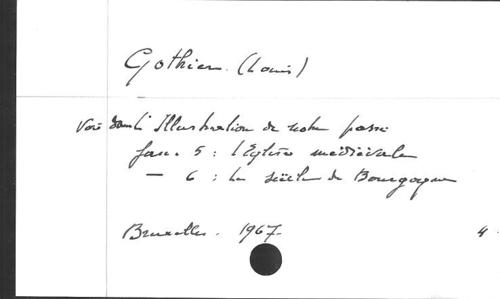 Gothier (Louis)
Voir dans l'Illustration de notre passé
fasc. 5 : l'Eglise médiévale
— 6 : Le siècle de Bourgogne
Bruxelles. 1967.
4.